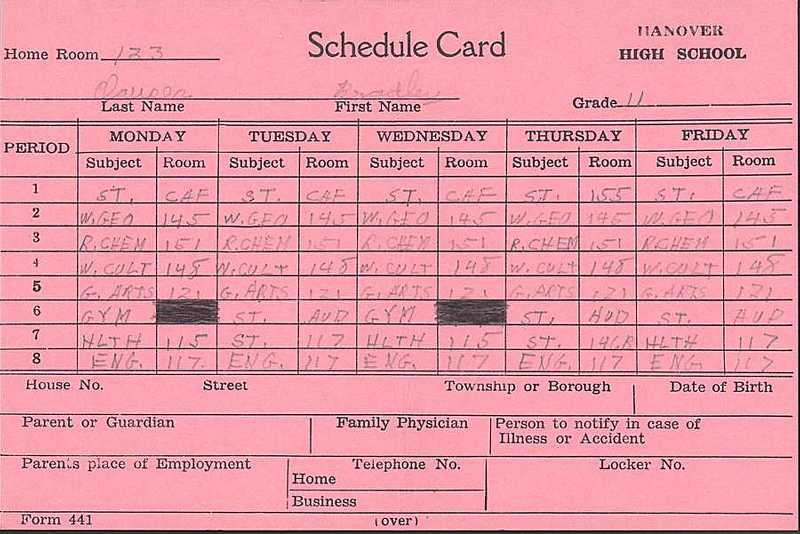 HANOVER
Schedule Card
HIGH SCHOOL
Home Room 123
Bradley
Last Name First Name Grade 11
PERIOD MONDAY TUESDAY WEDNESDAY THURSDAY FRIDAY
Subject Room Subject Room Subject Room Subject Room Subject Room
1 ST. CAF ST. CAF ST. CAF ST. 155 ST. CAF
2 W.GEO 145 W.GEO 145 W.GEO 145 W.GEO 145 W.GEO 145
3 R.CHEM 151 R.CHEM 151 R.CHEM 151 R.CHEM 151 R.CHEM 151
4 W.CULT 148 W.CULT 148 W.CULT 148 W.CULT 148 W.CULT 148
5 G.ARTS 121 G.ARTS 121 G.ARTS 121 G.ARTS 121 G.ARTS 121
6 GYM ST. AUD GYM ST. AUD ST. AUD
7 HLTH 115 ST. 117 HLTH 115 ST. HLTH 117
8 ENG. 117 ENG. 117 ENG. 117 ENG. 117 ENG. 117
House No. Street Township or Borough Date of Birth
Parent or Guardian Family Physician Person to notify in case of
Illness or Accident
Parents place of Employment Telephone No. Locker No.
Home
Business
Form 441 (over)